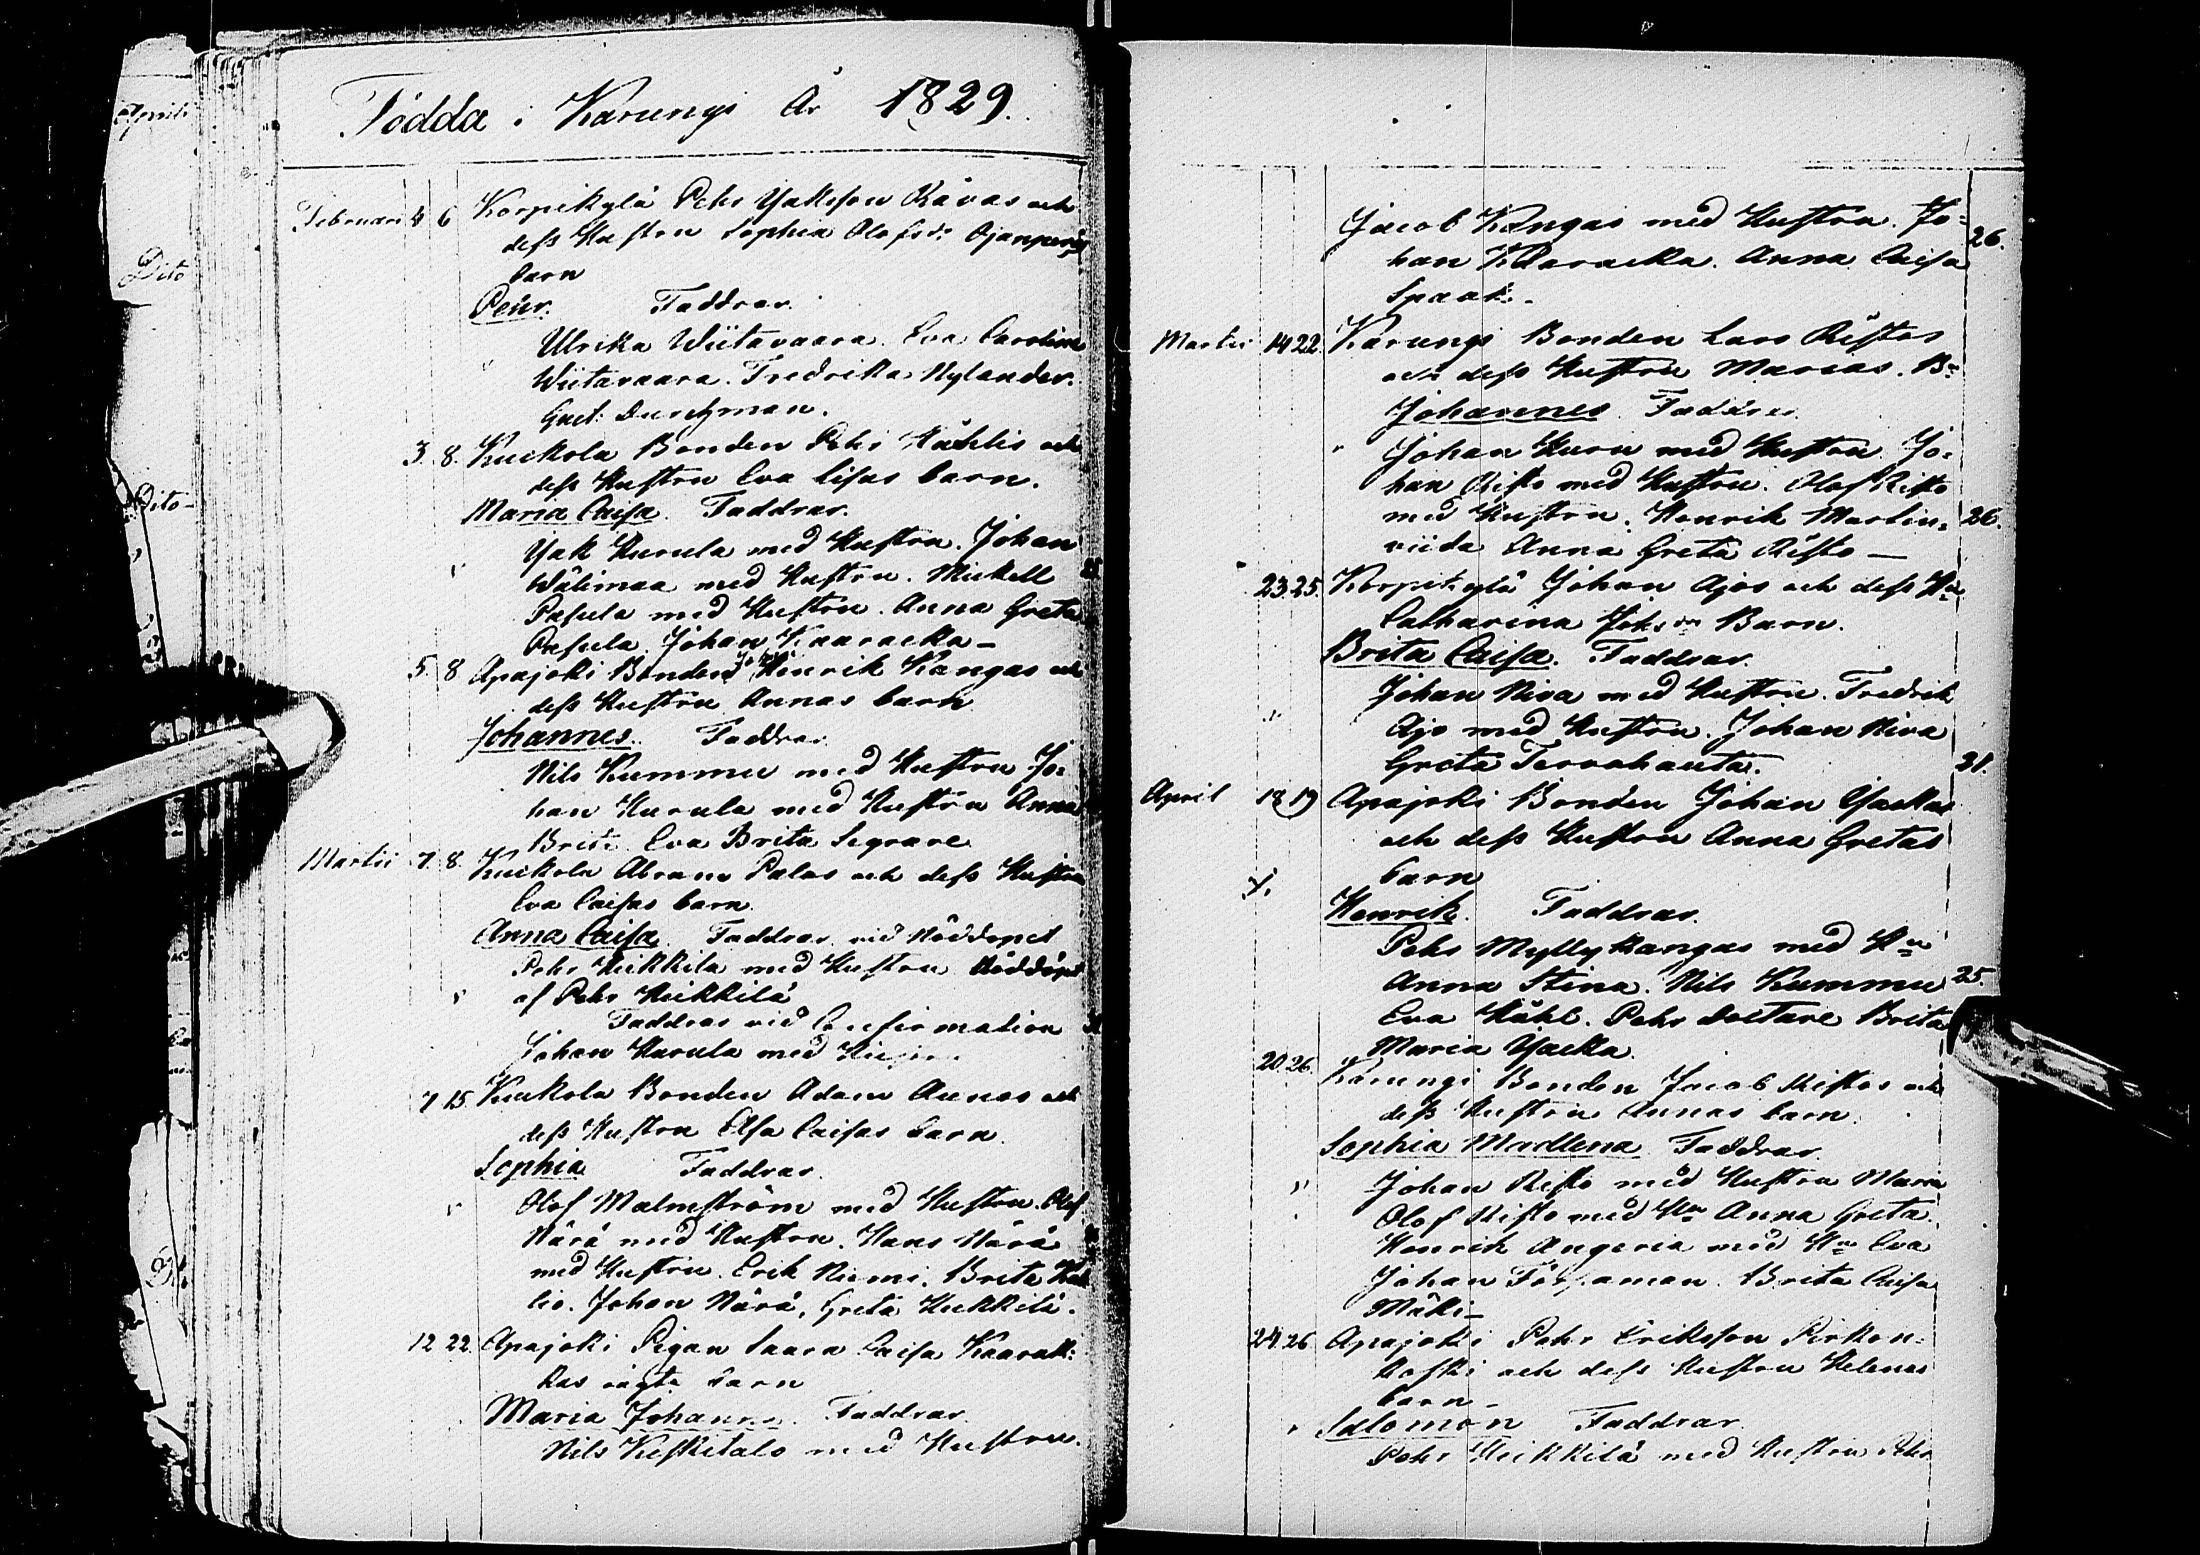 Födda i Karungi År 1829.
Februari 4 6 Korpikylä Pehr Yaksson Rävas och
dess Hustru Sophia Olofsdr Ojanperäs
barn
Pehr. Faddrar.
Ulrika Wiitavaara. Eva Carolina
Wiitavaara. Fredrika Nylander.
Gust.
3. 8. Kuckola Bonden Pehr Kählis och
dess Hustru Eva Lisas barn.
Maria Caisa. Faddrar.
Yak Kurula med Hustru. Johan
Wälimaa med Hustru. Mickell
Pasula med Hustru. Anna Greta
Pasula. Johan Kaaracka —
5. 8 Apajoki Bonden Henrik Kangas och
dess Hustru Annas barn
Johannes. Faddrar.
Nils Kummu med Hustru Jo-
han Kurula med Hustru Anna
Brita. Eva Brita Segrare
Martii 7. 8. Kuckola Abram Palos och dess Hustru
Eva Caisas barn.
Anna Caisa. Faddrar vid Nöddopet
Pehr Heikkilä med Hustru Nöddöpt
af Pehr Heikkilä
Faddrar vid Confirmation
Johan Kurula med Hustru
7 15 Kuckola Bonden Adam Aunos och
dess Hustru Elsa Caisas barn.
Sophia Faddrar.
Olof Malmström med Hustru. Olof
Närä med Hustru. Hans Närä
med Hustru. Erik Niemi. Brita Kal
lio. Johan Närä, Greta Heikkilä.
12 22. Apajoki Pigan Saara Caisa Kaarak-
kas oägta barn
Maria Johanna. Faddrar
Nils Keskitalo med Hustru.
Jacob Kangas med Hustru. Jo- 26.
han Kaaracka. Anna Caisa
Spaak. -
Martii 14 22. Karungi Bonden Lars Ristos
och dess Hustru Marias. Bn
Johannes. Faddrar.
Johan Kuru med Hustru. Jo-
han Risto med Hustru. Olof Risto
med Hustru. Henrik Martin- 26.
viida Anna Greta Risto —
23. 25. Korpikylä Johan Ajos och dess Hu
Catharina Johsdr Barn.
Brita Caisa. Faddrar.
Johan Niva med Hustru. Fredrik
Ajo med Hustru. Johan Niva
Greta Tervahauta. 31.
April 18 19 Apajoki Bonden Johan Yackas
och dess Hustru Anna Gretas
barn
Henrik. Faddrar.
Pehr Myllykangas med Hu
Anna Stina. Nils Kummu 25.
Eva Kähl. Pehr Doctare Brita
Maria Yacka.
20. 26. Karungi Bonden Jacob Ristos och
dess Hustru Annas barn.
Sophia Madlena Faddrar.
Johan Risto med Hustru Maria
Olof Risto med Hu Anna Greta.
Henrik Angeria med Hu Eva
Johan. Brita Caisa
Mäki —
24. 26 Apajoki Pehr Eriksson Pirkon-
koski och dess Hustru Helenas
barn —
Salomon Faddrar
Pehr Heikkilä med Hustru Pehr
Aprili
Dito
Dito